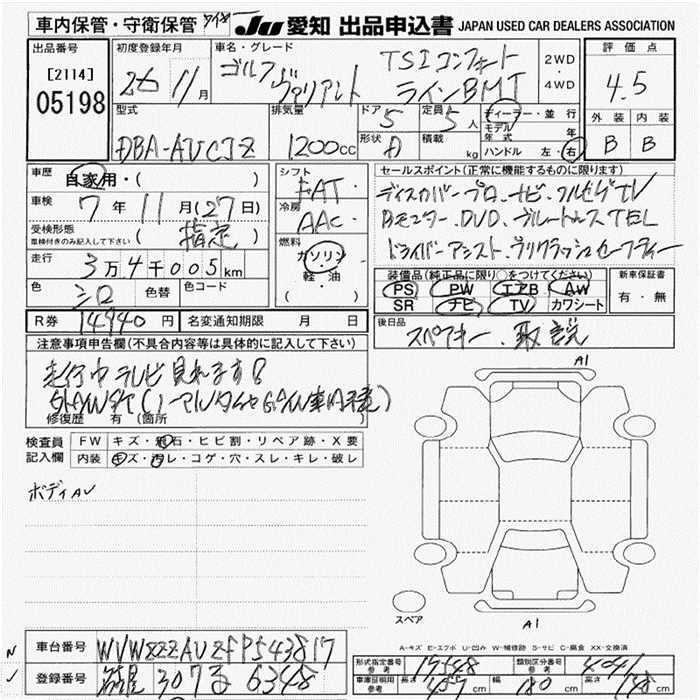 車内保管・守衛保管
JU 愛知 出品申込書 JAPAN USED CAR DEALERS ASSOCIATION
出品番号
[2114]
05198
初度登録年月
26年 11月
車名・グレード
ゴルフ ヴァリアント
TSIコンフォート
ラインBMT
2WD・4WD
評価点
4.5
外装 内装
B B
型式
DBA-AUCJZ
排気量
1200cc
ドア 5
形状
定員 5人
積載 kg
ディーラー・並行
モデル年式 年
ハンドル 左・右
車歴
自家用・( )
車検
7年11月(27日)
受検形態
車検付きのみ記入して下さい
( 指定 )
走行
3万4千005km
色
シロ
色替
色コード
シフト
FAT
冷房
AAC
燃料
ガソリン
軽・油
( )
R券 14940円
名変通知期限 月 日
セールスポイント(正常に機能するものに限ります)
ディスカバープロ.ナビ.フルセグTV
Bモニター.DVD.ブルートゥースTEL
ドライバーアシスト.プリクラッシュセーフティー
装備品(純正品に限り○をつけてください)
PS PW エアB AW
SR ナビ TV カワシート
新車保証書
有・無
後日品
スペアキー.取説
注意事項申告欄(不具合内容等は具体的に記入して下さい)
走行中テレビ見れます
修復歴 有(箇所 )
検査員記入欄
FW キズ・飛石・ヒビ割・リペア跡・X要
内装 キズ・汚レ・コゲ・穴・スレ・キレ・破レ
ボディAU
A1
スペア
A1
A-キズ E-エクボ U-凹み W-補修跡 S-サビ C-腐食 XX-交換済
車台番号
WVWZZZAUZFP543817
登録番号
307 る 6348
形式指定番号 参考 17548
類別区分番号 参考 4041
車庫証明用 参考 長さ 457cm 幅 180cm 高さ 148cm